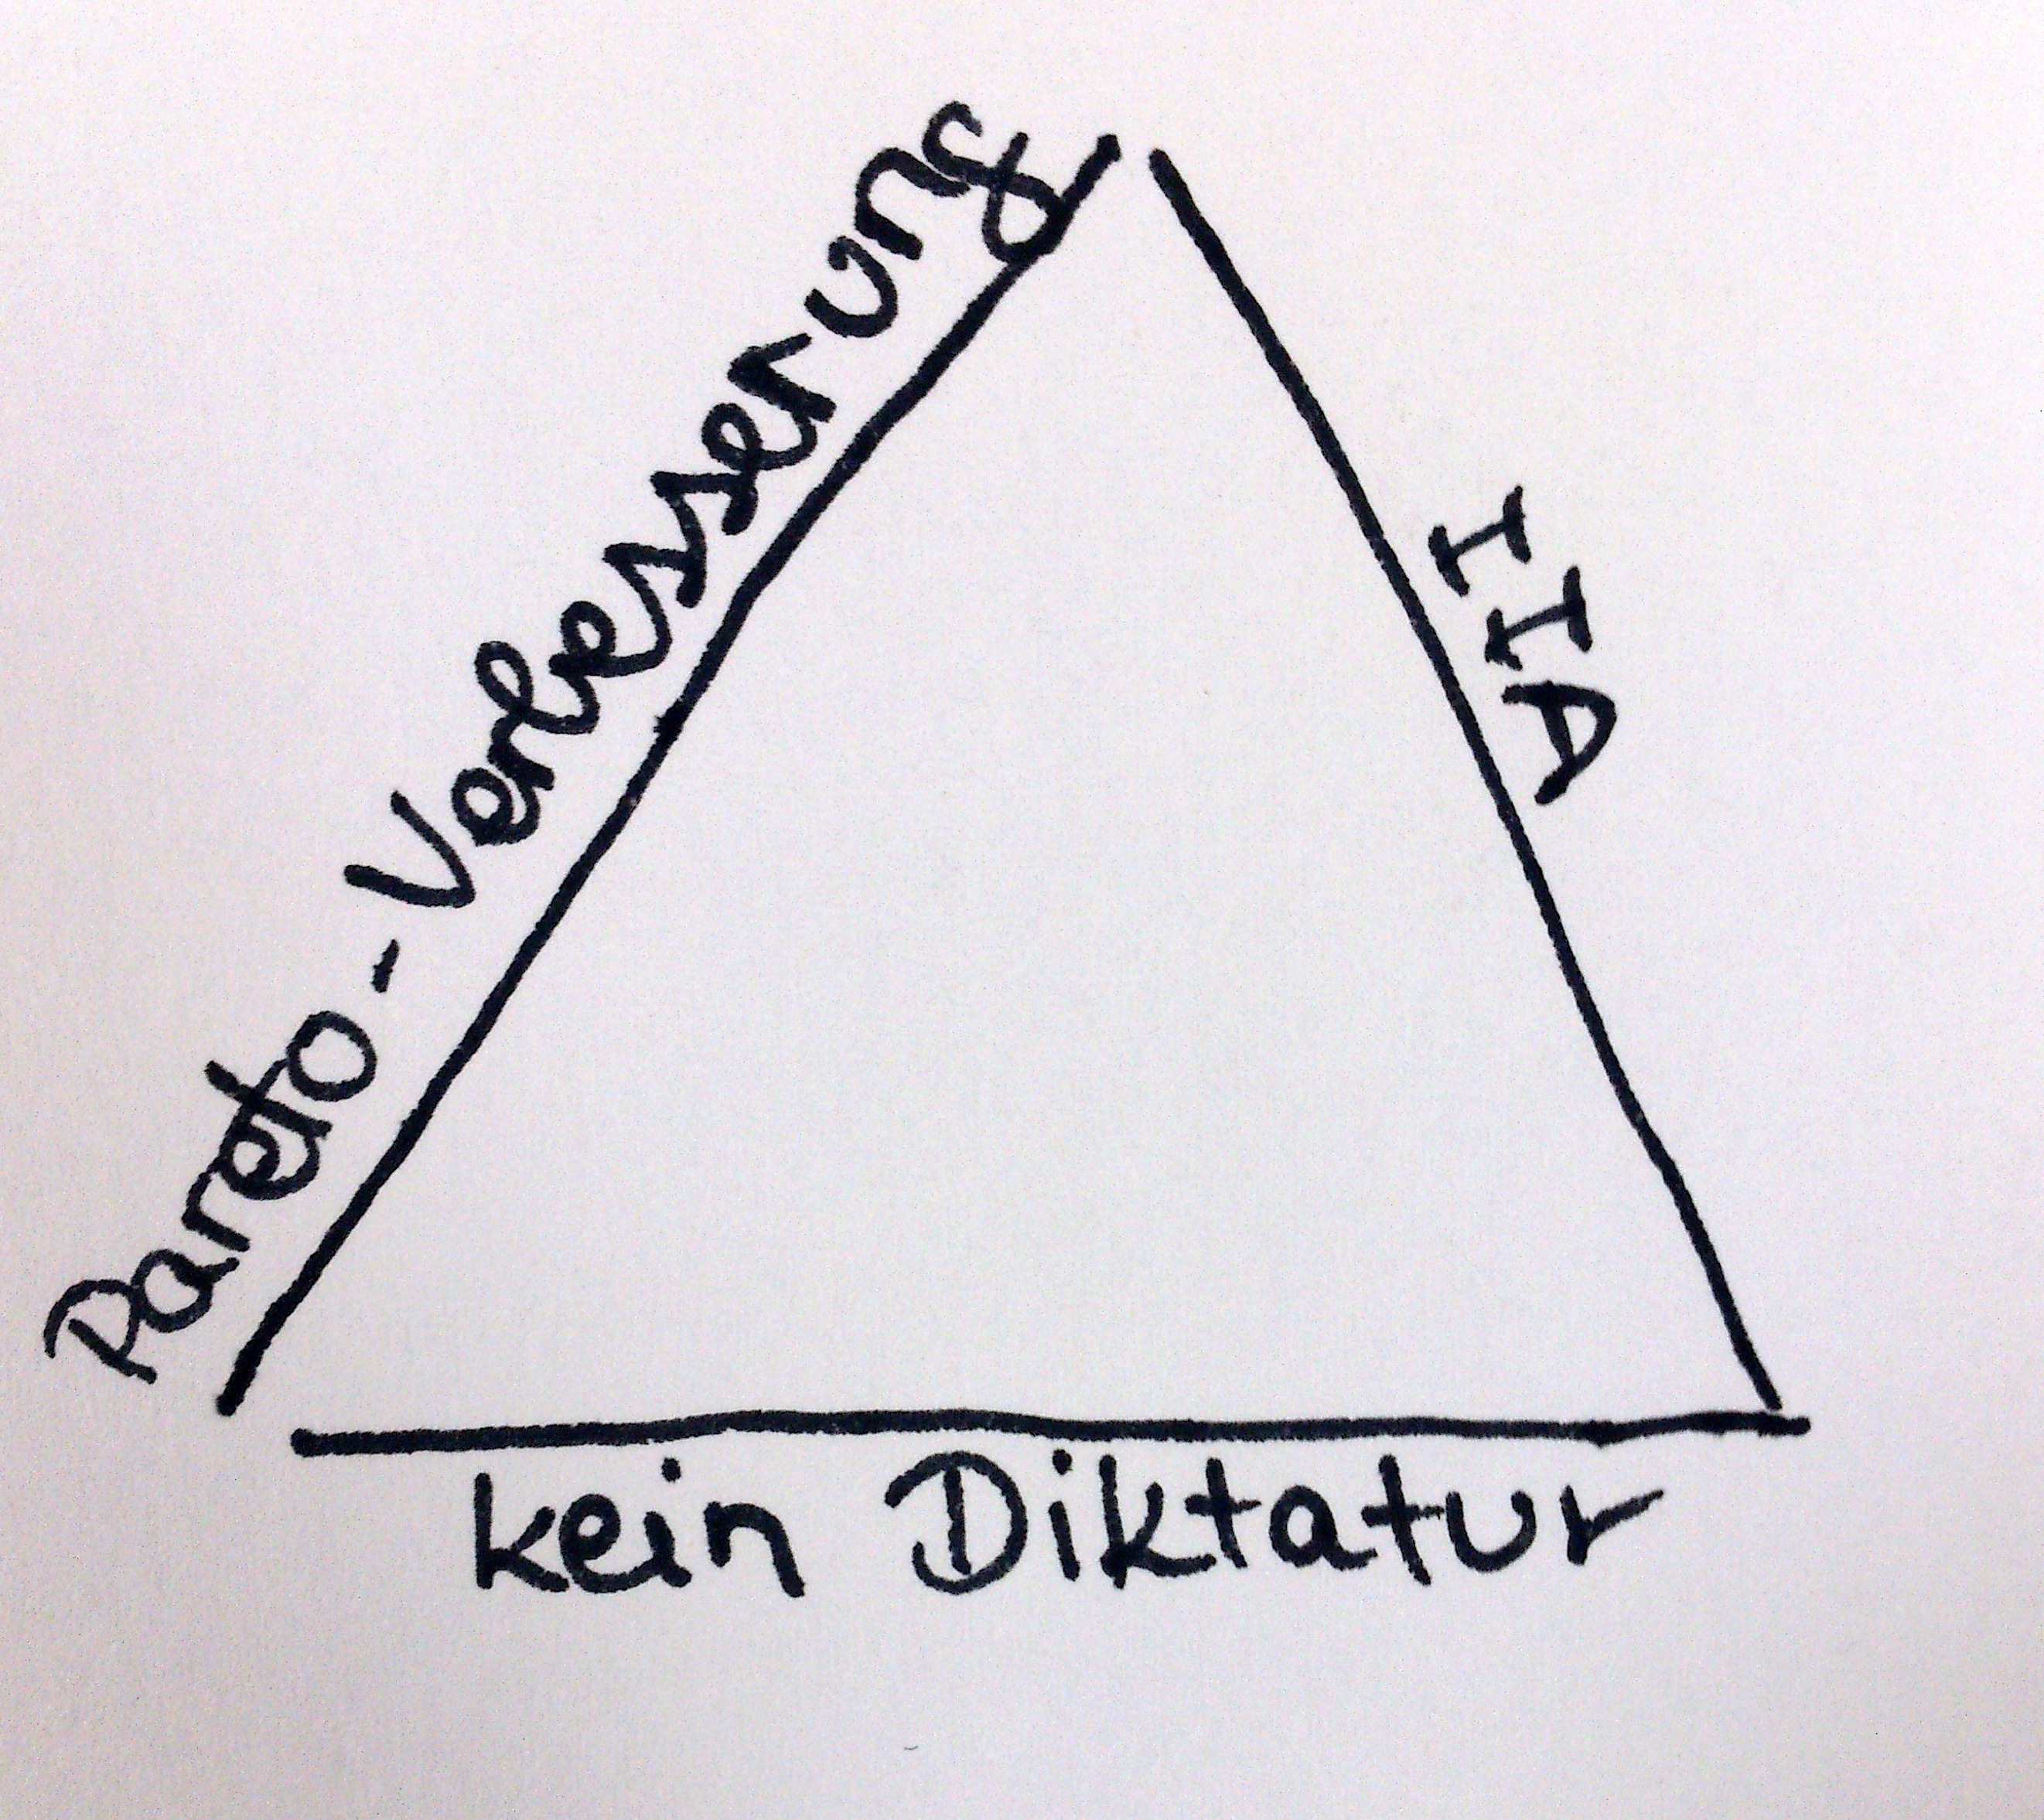 Pareto-Verbesserung
IIA
kein Diktatur